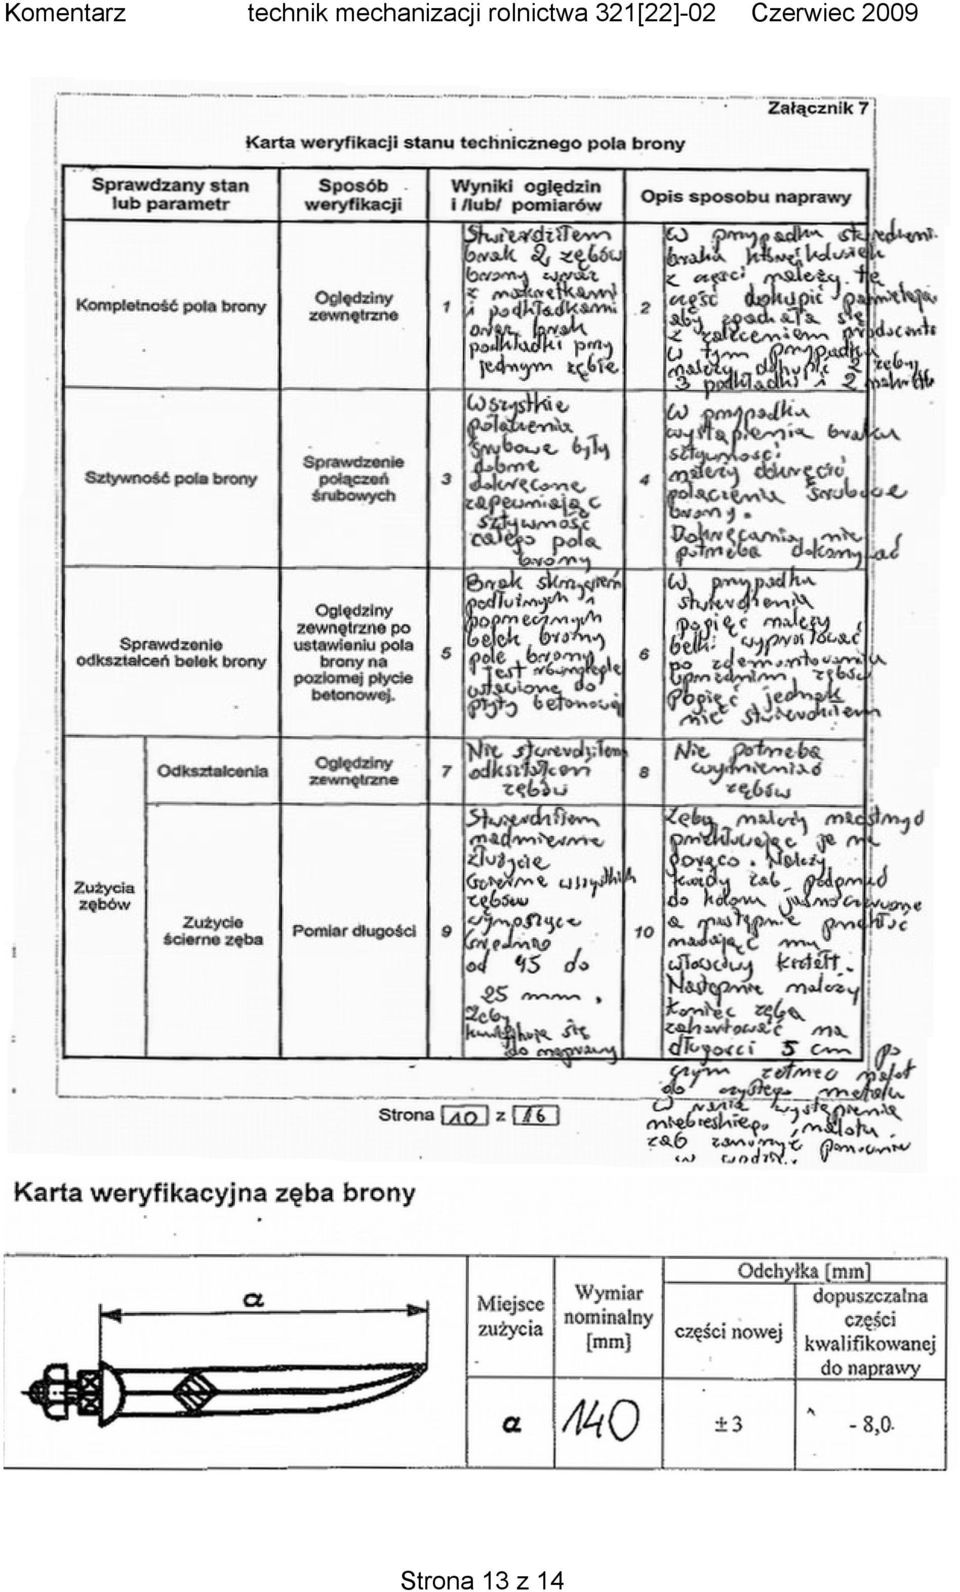 Komentarz technik mechanizacji rolnictwa 321[22]-02 Czerwiec 2009
Załącznik 7
Karta weryfikacji stanu technicznego pola brony
Sprawdzany stan lub parametr
Sposób weryfikacji
Wyniki oględzin i /lub/ pomiarów
Opis sposobu naprawy
Kompletność pola brony
Oględziny zewnętrzne
1
Stwierdziłem
brak 2 zębów
brony wraz
z nakrętkami
i podkładkami
oraz brak
podkładki przy
jednym zębie
2
W przypadku
braku
z części należy tę
część dokupić
aby zgadzała się
z zaleceniem producenta
W tym przypadku
należy dokupić 2 zęby,
3 podkładki i 2 nakrętki
Sztywność pola brony
Sprawdzenie połączeń śrubowych
3
Wszystkie
połączenia
śrubowe były
dobrze
dokręcone
zapewniając
sztywność
całego pola
brony
4
W przypadku
wystąpienia braku
sztywności
należy dokręcić
połączenia śrubowe
brony.
Dokręcania nie
potrzeba dokonywać
Sprawdzenie odkształceń belek brony
Oględziny zewnętrzne po ustawieniu pola brony na poziomej płycie betonowej.
5
Brak skrzywień
podłużnych i
poprzecznych
belek brony
pole brony
jest równolegle
ustawione do
płyty betonowej
6
W przypadku
stwierdzenia
pogięć należy
belki wyprostować
po zdemontowaniu
uprzednim zębów
Pogięć jednak
nie stwierdziłem
Zużycia zębów
Odkształcenia
Oględziny zewnętrzne
7
Nie stwierdziłem
odkształceń
zębów
8
Nie potrzeba
wymieniać
zębów
Zużycie ścierne zęba
Pomiar długości
9
Stwierdziłem
nadmierne
zużycie
ścierne wszystkich
zębów
wynoszące
średnio
od 45 do
25 mm,
Zęby
kwalifikują się
do naprawy
10
Zęby należy naostrzyć
przekuwając je na
gorąco. Należy
każdy ząb podgrzać
do koloru jasnoczerwonego
a następnie przekuć
nadając mu
właściwy kształt.
Następnie należy
koniec zęba
zahartować na
długości 5 cm po
czym zetrzeć nalot
do czystego metalu
W razie wystąpienia
niebieskiego nalotu
ząb zanurzyć ponownie
w wodzie.
Strona 10 z 16
Karta weryfikacyjna zęba brony
α
Miejsce zużycia
Wymiar nominalny [mm]
Odchyłka [mm]
części nowej
dopuszczalna części kwalifikowanej do naprawy
α
140
±3
- 8,0.
Strona 13 z 14